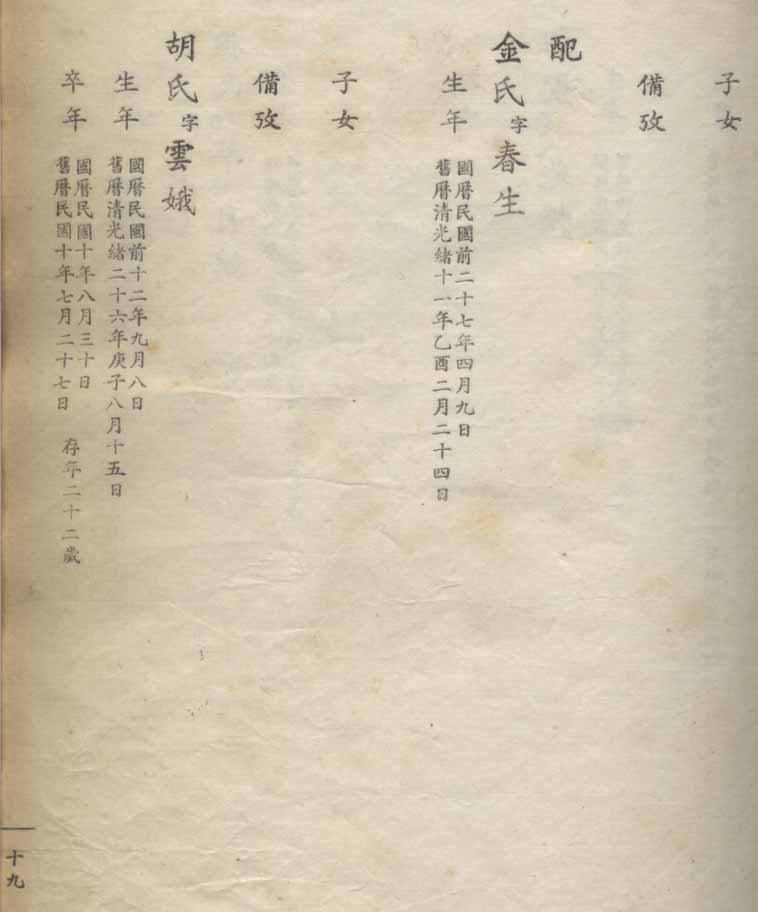 子女
備攷
配
金氏字春生
生年 國曆民國前二十七年四月九日
舊曆清光緒十一年乙酉二月二十四日
子女
備攷
胡氏字雲娥
生年 國曆民國前十二年九月八日
舊曆清光緒二十六年庚子八月十五日
卒年 國曆民國十年八月三十日
舊曆民國十年七月二十七日
存年二十二歲
十九